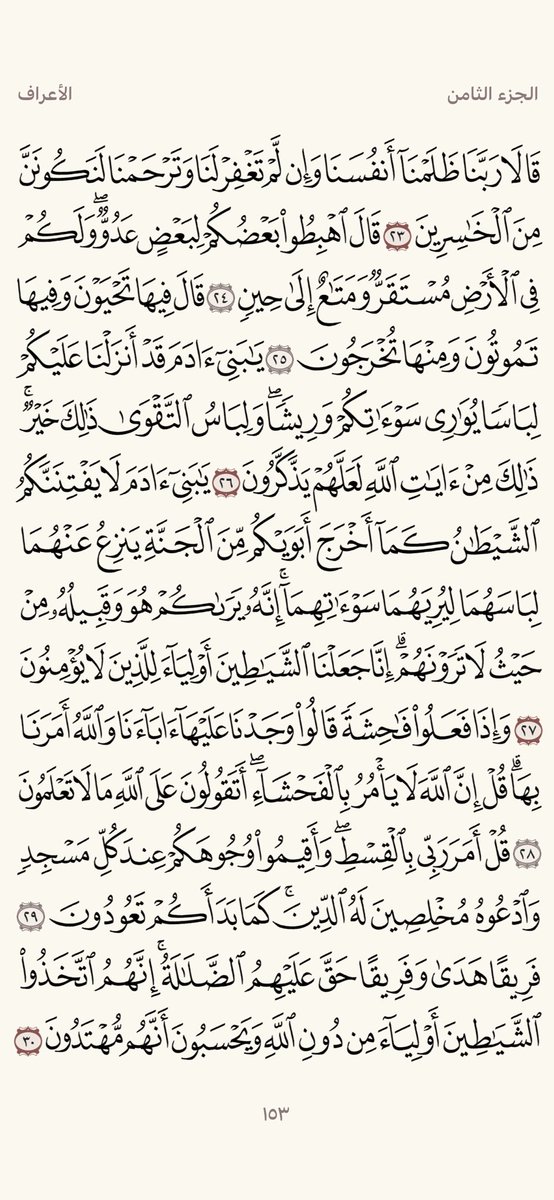 الجزء الثامن
الأعراف
قَالَا رَبَّنَا ظَلَمْنَآ أَنفُسَنَا وَإِن لَّمْ تَغْفِرْ لَنَا وَتَرْحَمْنَا لَنَكُونَنَّ
مِنَ ٱلْخَـٰسِرِينَ ٢٣ قَالَ ٱهْبِطُوا۟ بَعْضُكُمْ لِبَعْضٍ عَدُوٌّ ۖ وَلَكُمْ
فِى ٱلْأَرْضِ مُسْتَقَرٌّ وَمَتَـٰعٌ إِلَىٰ حِينٍ ٢٤ قَالَ فِيهَا تَحْيَوْنَ وَفِيهَا
تَمُوتُونَ وَمِنْهَا تُخْرَجُونَ ٢٥ يَـٰبَنِىٓ ءَادَمَ قَدْ أَنزَلْنَا عَلَيْكُمْ
لِبَاسًا يُوَٰرِى سَوْءَٰتِكُمْ وَرِيشًا ۖ وَلِبَاسُ ٱلتَّقْوَىٰ ذَٰلِكَ خَيْرٌ ۚ
ذَٰلِكَ مِنْ ءَايَـٰتِ ٱللَّهِ لَعَلَّهُمْ يَذَّكَّرُونَ ٢٦ يَـٰبَنِىٓ ءَادَمَ لَا يَفْتِنَنَّكُمُ
ٱلشَّيْطَـٰنُ كَمَآ أَخْرَجَ أَبَوَيْكُم مِّنَ ٱلْجَنَّةِ يَنزِعُ عَنْهُمَا
لِبَاسَهُمَا لِيُرِيَهُمَا سَوْءَٰتِهِمَآ ۚ إِنَّهُۥ يَرَىٰكُمْ هُوَ وَقَبِيلُهُۥ مِنْ
حَيْثُ لَا تَرَوْنَهُمْ ۗ إِنَّا جَعَلْنَا ٱلشَّيَـٰطِينَ أَوْلِيَآءَ لِلَّذِينَ لَا يُؤْمِنُونَ
٢٧ وَإِذَا فَعَلُوا۟ فَـٰحِشَةً قَالُوا۟ وَجَدْنَا عَلَيْهَآ ءَابَآءَنَا وَٱللَّهُ أَمَرَنَا
بِهَا ۗ قُلْ إِنَّ ٱللَّهَ لَا يَأْمُرُ بِٱلْفَحْشَآءِ ۖ أَتَقُولُونَ عَلَى ٱللَّهِ مَا لَا تَعْلَمُونَ
٢٨ قُلْ أَمَرَ رَبِّى بِٱلْقِسْطِ ۖ وَأَقِيمُوا۟ وُجُوهَكُمْ عِندَ كُلِّ مَسْجِدٍ
وَٱدْعُوهُ مُخْلِصِينَ لَهُ ٱلدِّينَ ۚ كَمَا بَدَأَكُمْ تَعُودُونَ ٢٩
فَرِيقًا هَدَىٰ وَفَرِيقًا حَقَّ عَلَيْهِمُ ٱلضَّلَـٰلَةُ ۗ إِنَّهُمُ ٱتَّخَذُوا۟
ٱلشَّيَـٰطِينَ أَوْلِيَآءَ مِن دُونِ ٱللَّهِ وَيَحْسَبُونَ أَنَّهُم مُّهْتَدُونَ ٣٠
١٥٣